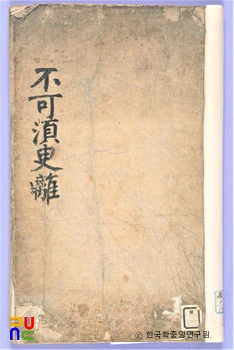 不可須史離
© 한국학중앙연구원.